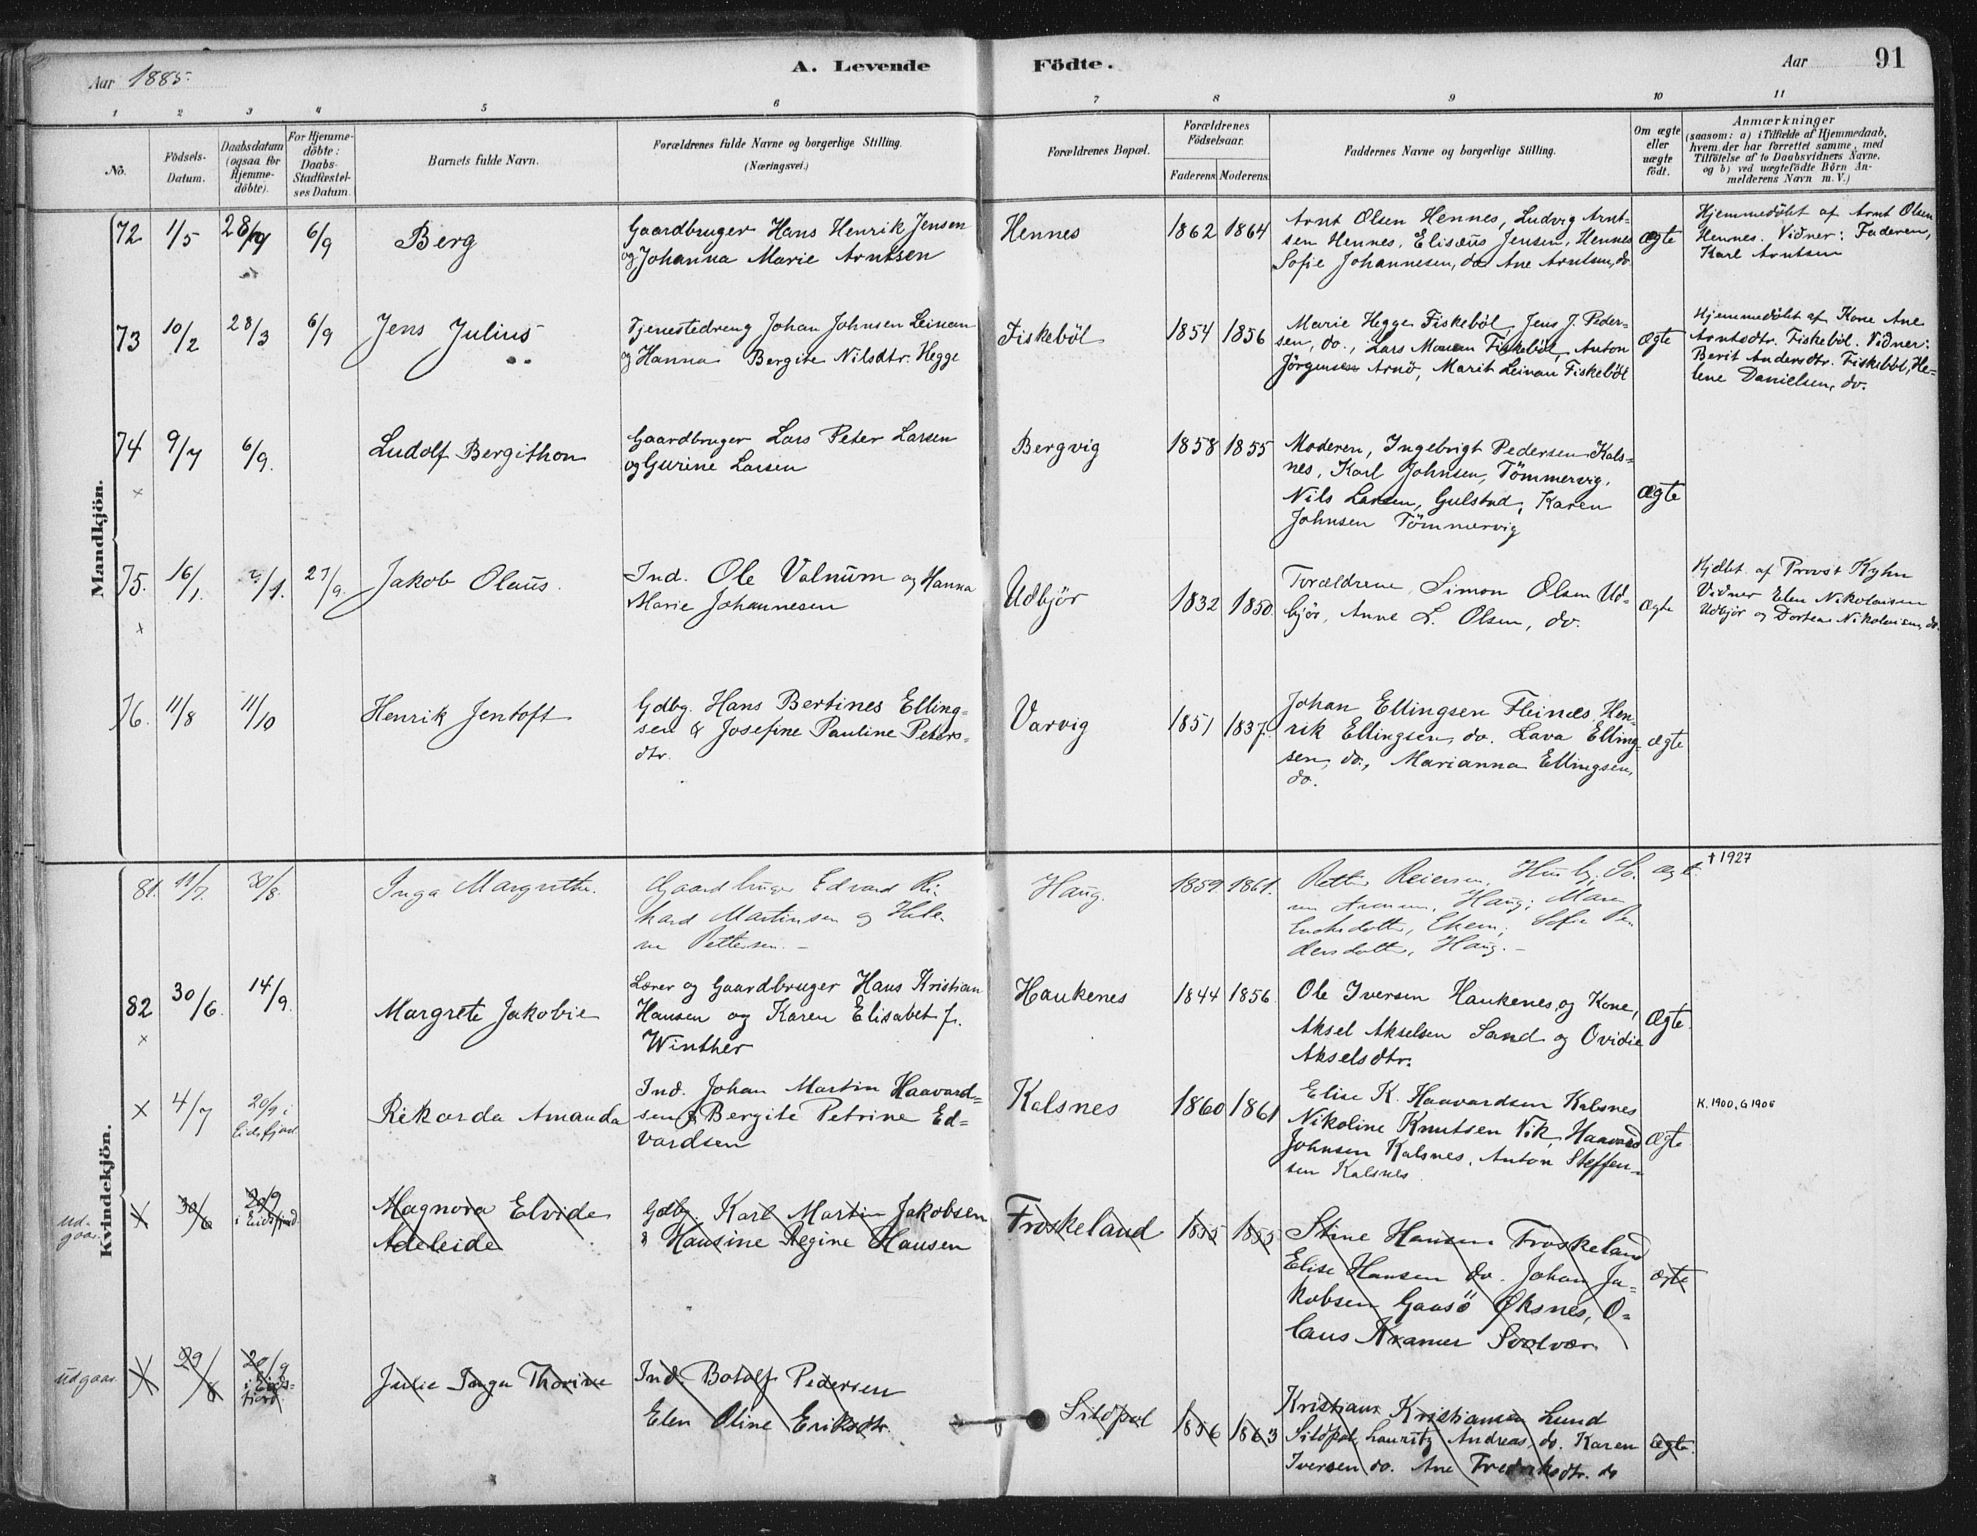 Aar 1885.
A. Levende Födte.
Aar 91
1 2 3 4 5 6 7 8 9 10 11
No.
Födsels-Datum.
Daabsdatum (ogsaa for Hjemmedöbte).
For Hjemmedöbte: Daabs-Stadfæstelses Datum.
Barnets fulde Navn.
Forældrenes fulde Navne og borgerlige Stilling.
(Næringsvei.)
Forældrenes Bopæl.
Forældrenes Födselsaar.
Faderens. Moderens.
Faddernes Navne og borgerlige Stilling.
Om ægte eller uægte födt.
Anmærkninger
(saasom: a) i Tilfælde af Hjemmedaab,
hvem der har forrettet samme, med
Tilföielse af to Daabsvidners Navne,
og b) ved uægtefödte Börn An-
melderens Navn m. V.)
Mandkjön.
72 1/5 6/9 Berg
Gaardbruger Hans Henrik Jensen
og Johanna Marie Arntsen
Hennes 1862 1864
Arnt Olsen Hennes, Ludvig Arnt-
sen Hennes, Elisæus Jensen, Hennes
Sofie Johannesen, do Ane Arntsen, do.
Ægte
Hjemmedöbt af Arnt Olsen
Hennes. Vidner: Faderen,
Karl Arntsen
73 10/2 28/3 6/9 Jens Julius
Tjenestedreng Johan Johnsen Leinan
og Hanna Bergite Nilsdtr. Hegge
Fiskeböl 1854 1856
Marie Hegge Fiskeböl, Jens J. Peder-
sen, do., Lars Fiskeböl, Anton
Jörgensen Arnö, Marit Leinan Fiskeböl
Ægte
Hjemmedöbt af Kone Ane
Arntsdtr. Fiskeböl. Vidner:
Berit Andersdtr. Fiskeböl, He-
lene Danielsen, do.
74 9/7 6/9. Ludolf Bergithon
Gaardbruger Lars Peter Larsen
og Gurine Larsen
Bergvig 1858 1855
Moderen, Ingebrigt Pedersen Kals-
nes, Karl Johnsen, Tömmervig,
Nils Larsen, Gulstad, Karen
Johnsen Tömmervig
Ægte
75. 16/1. 27/9. Jakob Olaus.
Ind. Ole Valnum og Hanna
Marie Johannesen
Udbjör 1832 1850.
Forældrene, Simon Olsen Ud-
björ, Anne L. Olsen, do.
Ægte
Hjdbt. af Provst Kyhn
Vidner Elen Nikolaisen
Udbjör og Dortea Nikolaisen, do.
76. 11/8 11/10 Henrik Jentoft
Gdbg. Hans Bertines Elling-
sen & Josefine Pauline Peters-
dtr.
Varvig 1851 1837.
Johan Ellingsen Fleinæs, Hen-
rik Ellingsen, do. Lava Elling-
sen, do., Marianna Ellingsen,
do.
Ægte
Kvindekjön.
81. 11/7. 30/8. Inga Margrethe.
Gaardbruger Edvard Ri-
kard Martinsen og Hele-
ne Pettersen. –
Haug. 1859. 1861.
Petter Reiersen, Husby,
Haug; Maren
Haug. –
† 1927
82 30/6. 14/9. Margrete Jakobie
Lærer og Gaardbruger Hans Kristian
Hansen og Karen Elisabet f.
Winther
Haukenes 1844 1856.
Ole Iversen Haukenes og Kone,
Aksel Akselsen Sand og Ovidie
Akselsdtr.
Ægte.
× 4/7 20/9 i Eidsfjord Rikarda Amanda
Ind. Johan Martin Haavard-
sen & Bergite Petrine Ed-
vardsen
Kalsnes 1860 1861
Elise K. Haavardsen Kalsnes
Nikoline Knutsen Vik, Haavard
Johnsen Kalsnes, Anton Steffen-
sen Kalsnes
Ægte
K. 1900, G 1906
ud-
gaar.
30/6 20/9 i Eidsfjord Magnora Elvide
Adeleide
Gdbg. Karl Martin Jakobsen
& Hansine Regine Hansen
Froskeland 1855 1855
Stine Hansen Froskeland
Elise Hansen do. Johan Ja-
kobsen Gaasö Öksnes, O-
laus Kramer Svolvær
Ægte
udgaar.
20/9 i Eidsfjord Julie Inga Thorine
Ind. Botolf Pedersen
Elen Oline Eriksdtr.
Sildpol 1856 1863
Kristiane Kristiansen Lund
Sildpol, Lauritz Andreas, do. Karen
Iversen do. Ane Fredriksdtr. do
Ægte.